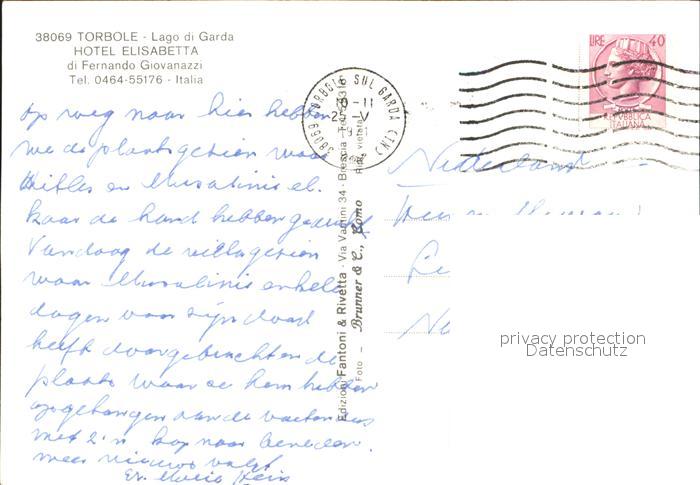 38069 TORBOLE - Lago di Garda
HOTEL ELISABETTA
di Fernando Giovanazzi
Tel. 0464-55176 - Italia
op weg naar hier hebben
we de plaats gezien waar
Hitler en Musalinie el.
kaar de hand hebben gedrukt
Vandaag de villa gezien
waar Musalinie enkele
dagen voor zijn dood
heeft doorgebracht en de
plaats waar ze hem hebben
opgehangen aan de voeten
met z'n kop naar beneden.
meer nieuws volgt
38069 TORBOLE SUL GARDA (TN)
LIRE 40
REPUBBLICA
ITALIANA
Edizioni Fantoni & Rivetta - Via Vantini 34 - Brescia
Ripr. vietata
Foto - Brunner & C., Como
Nederland
privacy protection
Datenschutz